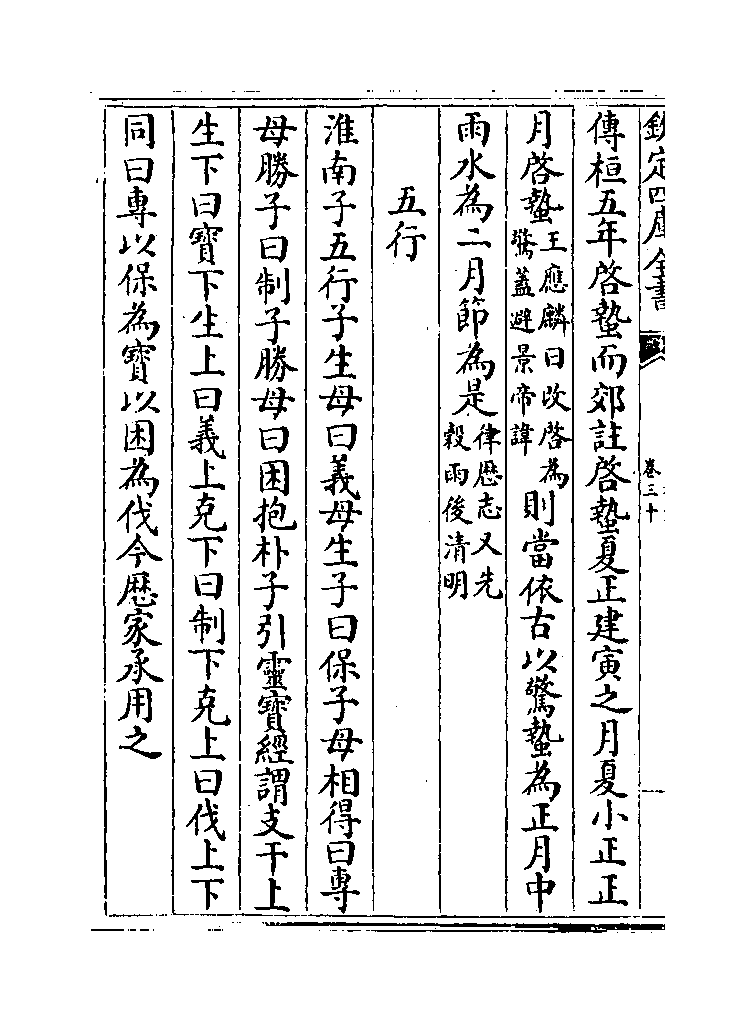 欽定四庫全書
卷三十
傳桓五年啓蟄而郊註啓蟄夏正建寅之月夏小正正
月啓蟄王應麟曰改啓為驚蓋避景帝諱則當依古以驚蟄為正月中
雨水為二月節為是律厯志又先穀雨後清明
五行
淮南子五行子生母曰義母生子曰保子母相得曰專
母勝子曰制子勝母曰困抱朴子引靈寶經謂支干上
生下曰寶下生上曰義上克下曰制下克上曰伐上下
同曰專以保為寶以困為伐今厯家承用之